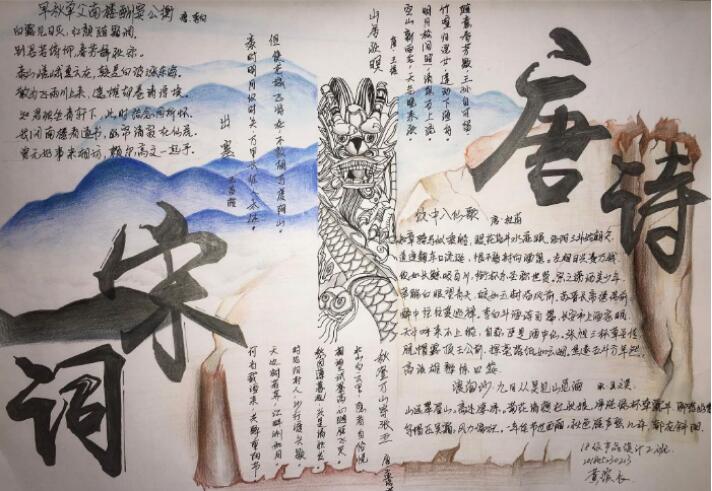 早秋单父南楼酬窦公衡 唐·李白
白露见日灭,红颜随霜凋。
别君若俯仰,春芳辞秋条。
泰山嵯峨夏云在,疑是白波涨东海。
散为飞雨川上来,遥帷却卷清浮埃。
知君独坐青轩下,此时结念同所怀。
我闭南楼看道书,幽帘清寂在仙居。
曾无好事来相访,赖尔高文一起予。
出塞
王昌龄
秦时明月汉时关,万里长征人未还。
但使龙城飞将在,不教胡马度阴山。
山居秋暝
唐·王维
空山新雨后,天气晚来秋。
明月松间照,清泉石上流。
竹喧归浣女,莲动下渔舟。
随意春芳歇,王孙自可留。
唐
诗
饮中八仙歌 唐·杜甫
知章骑马似乘船,眼花落井水底眠。汝阳三斗始朝天,
道逢麴车口流涎,恨不移封向酒泉。左相日兴费万钱,
饮如长鲸吸百川,衔杯乐圣称世贤。宗之潇洒美少年,
举觞白眼望青天,皎如玉树临风前。苏晋长斋绣佛前,
醉中往往爱逃禅。李白斗酒诗百篇,长安市上酒家眠,
天子呼来不上船,自称臣是酒中仙。张旭三杯草圣传,
脱帽露顶王公前,挥毫落纸如云烟。焦遂五斗方卓然,
高谈雄辩惊四筵。
浪淘沙 九日从
宋
词
秋登万山寄张五 唐·孟浩然
北山白云里,隐者自怡悦。
相望试登高,心随雁飞灭。
愁因薄暮起,兴是清秋发。
时见归村人,沙行渡头歇。
天边树若荠,江畔洲如月。
何当载酒来,共醉重阳节。